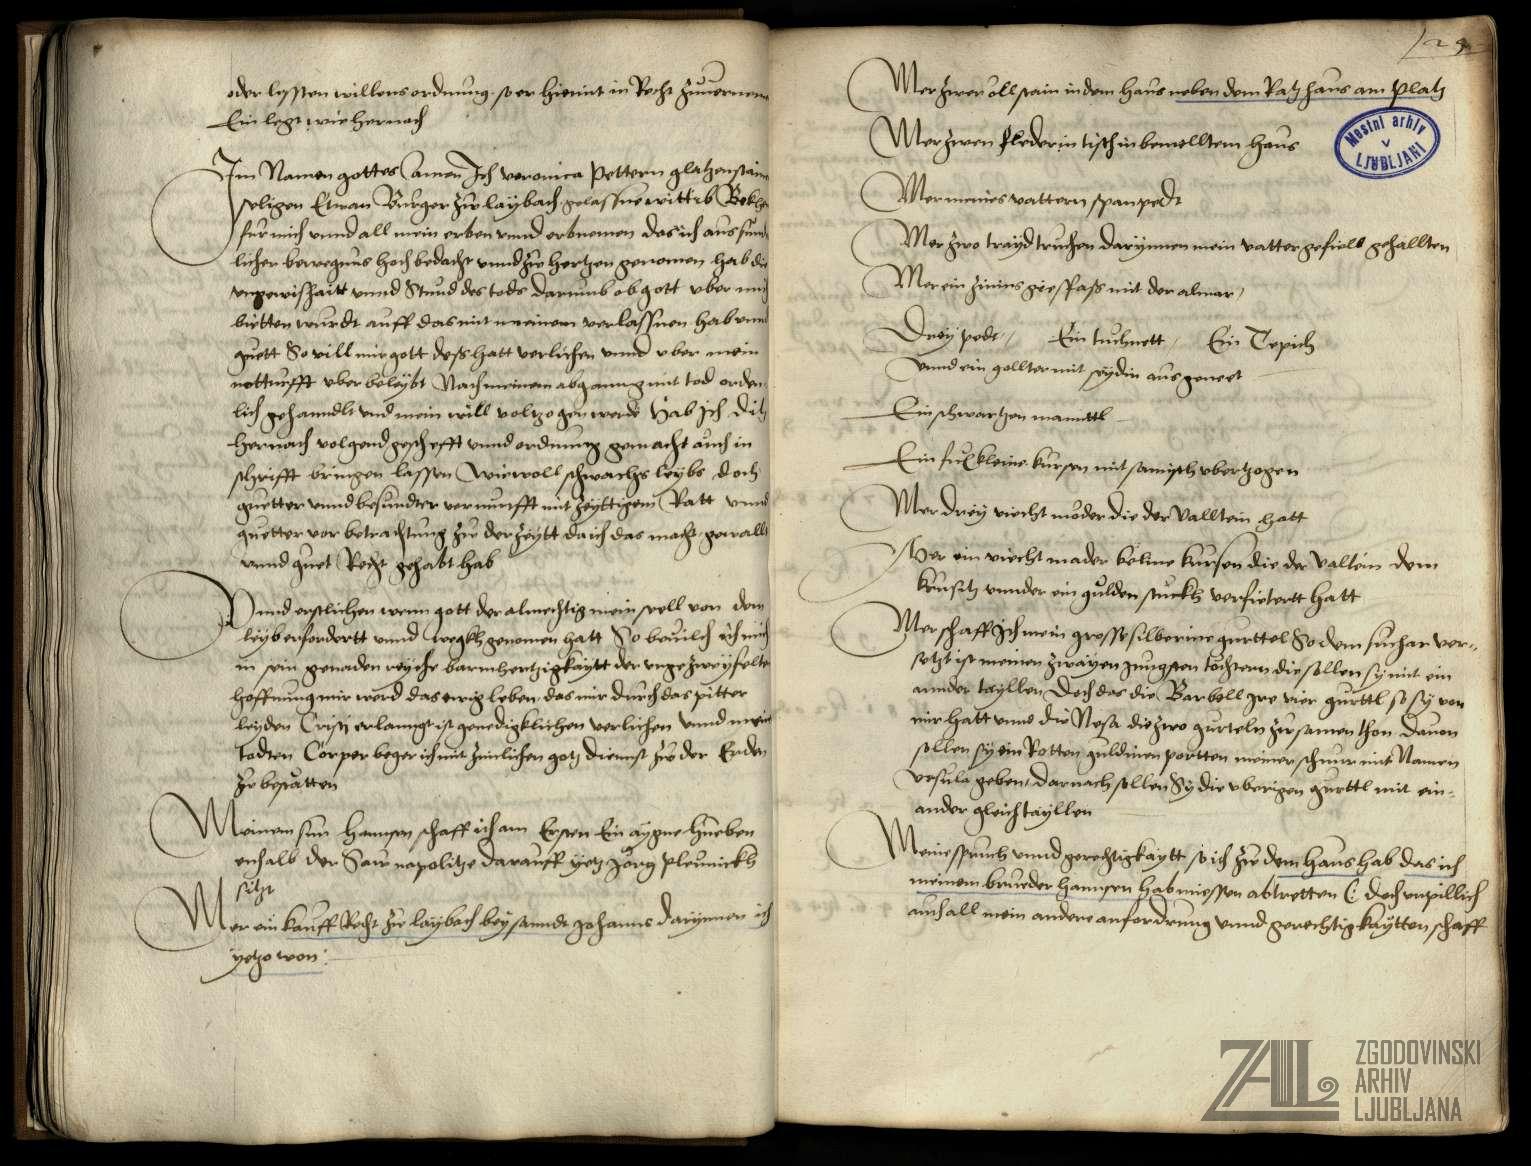 oder lesten willens ordnung so er hiemit in Recht zuuernemen
Ein legt wie hernach
Im Namen gottes amen Ich veronica Pettern glatzenstain
seligen Etwan Burger zw laybach gelassne wittib Bekhen
fur mich vnnd all mein erben vnnd erbnemen das ich aus sund
licher bewegnus hoch bedacht vnnd zw hertzen genomen hab die
vngewishaitt vnnd Stund des tods Darumb ob gott vber mich
bietten wurdt auff das mit meinem verlassnen hab vnnd
guett So vill mir gott dess hatt verlichen vnnd vber mein
notturfft vber beleybt Nach meinem abganng mit tod orden
lich gehanndlt vnd mein will voltzogen werde Hab Ich Ditz
hernach volgend geschefft vnnd ordnung gemacht auch in
schrifft bringen lassen Wiewoll schwachs leybs doch
guetter vnnd besundter vernunfft mit zeyttigem Ratt vnnd
guetter vor betrachtung zw der zeytt da ich das macht gewallt
vnnd guet Recht gehabt hab
Vnnd erstlichen wenn gott der almechtig mein sell von dem
leyb erfordertt vnnd wegkh genomen hatt So beuilch ich mich
in sein genaden reyche barmhertzigkaytt der vngezweyfelten
hoffnung mir werd das ewig leben das mir durch das pitter
leyden Cristj erlanngt ist genedigklichen verlichen vnnd mein
todten Corper beger ich mit zimlichen gotz diennst zw der Erden
zw bestatten
Meinem sun Hannsen schaff ich am Ersten Ein aygne hueben
enhalb der Saw napolitze darauff yetz Jorg pleunickh
sitzt
Mer ein kauff Recht zw laybach bey sanndt Johanns darynnen ich
yetzo won
Mer zwen öllstain in dem haus neben dem Ratzhaus am platz
Mer zwen flederin tisch in bemelltem haus
Mer meines vattern spanpedt
Mer zwo traydtruchen darynnen mein vatter gehallten
Mer ein zinins giessfass mit der almar
Drey pedt / Ein tuchnett / Ein Tepich
vnnd ein gollter mit seydin aus geneet
Ein schwartzen manttl
Ein kursen mit samisch vbertzogen
Mer drey viecht moder die der Valltein hatt
Mer ein viecht mader keline kursen die der Valtein dem
vnnder ein gulden stuckh verfietertt hatt
Mer schaff Ich mein grosse silberine gurttel So dem suchar ver-
setzt ist meinen zwayen jungsten töchtern die sollen sy mit ein
annder tayllen Doch das die Barbell jre vier gurttl so sy von
mir hatt vnnd die Nesa die zwo gurteln zusamen thon Dauon
sollen sy ein Rotten guldinen portten meiner schnur mit Namen
vrsula geben, Darnach sollen Sy die vberigen gurttl mit ein-
ander gleich tayllen
Meine spruch vnnd gerechtigkaytt so ich zw dem haus hab das ich
meinem brueder Hannsen hab miessen abtretten doch vnpillich
auch all mein andere anfordrung vnnd gerechtigkaytten schaff
Mestni arhiv
v
LJUBLJANI
ZAL
ZGODOVINSKI
ARHIV
LJUBLJANA